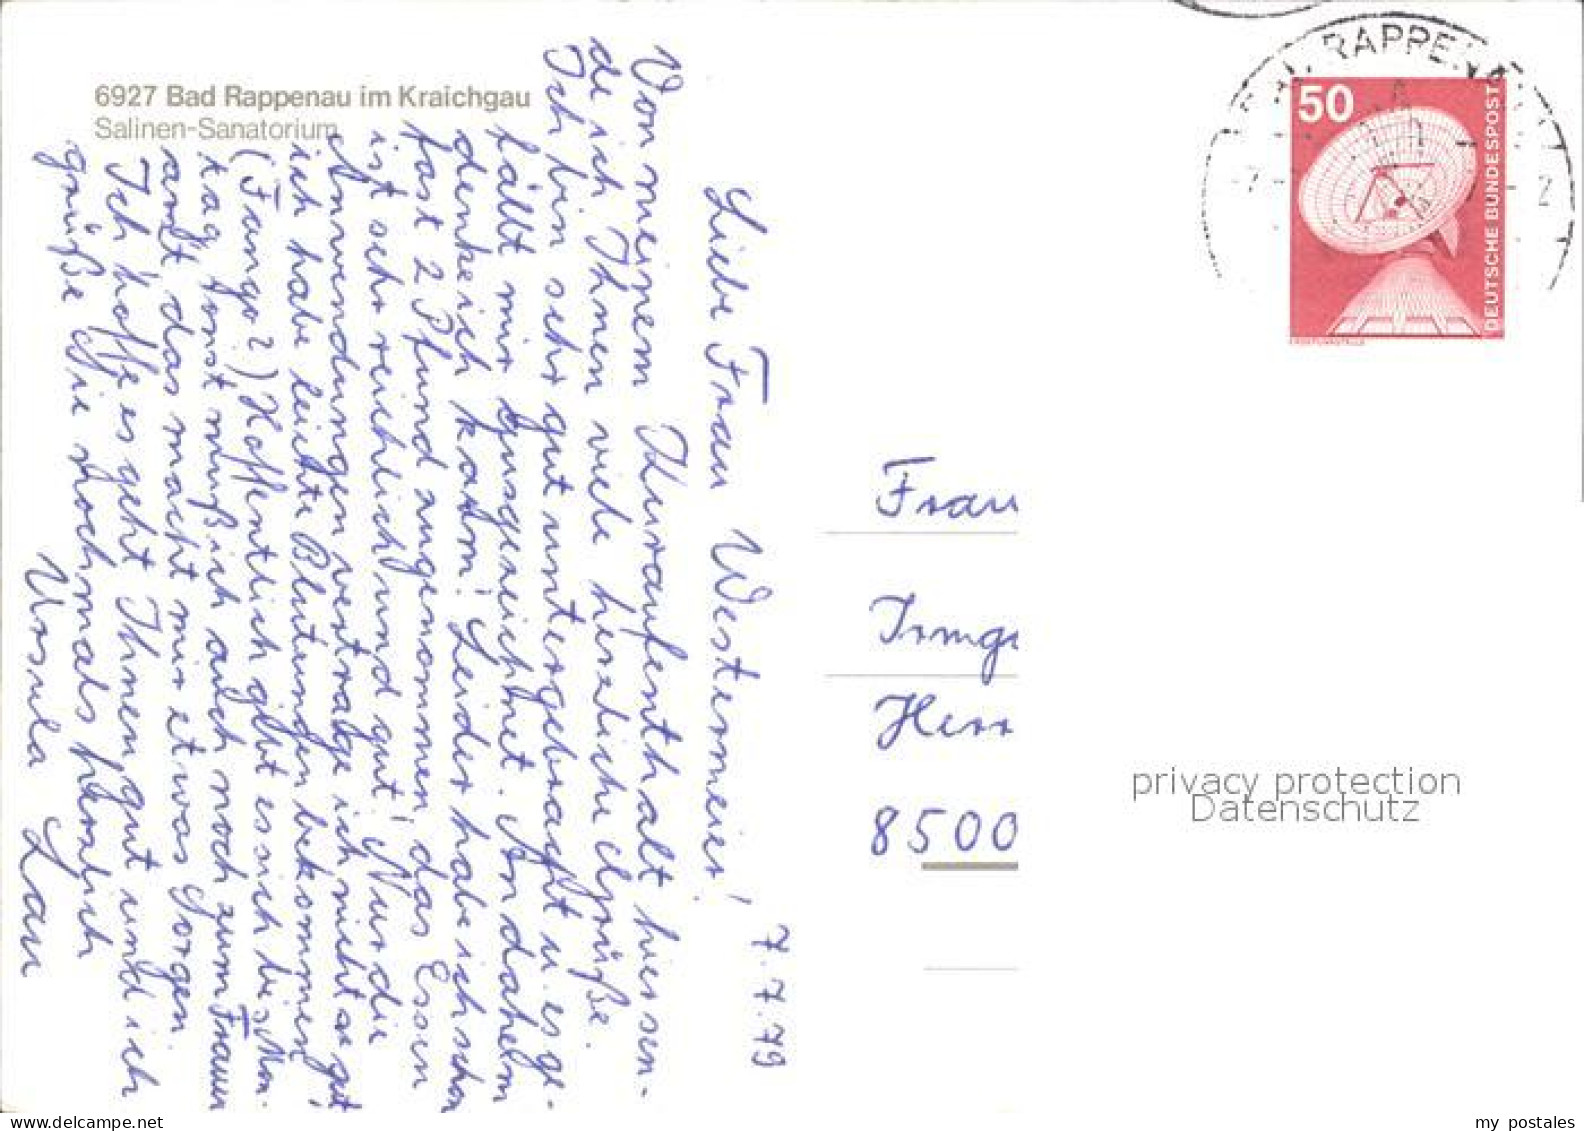 6927 Bad Rappenau im Kraichgau
Salinen-Sanatorium
7.7.79
Liebe Frau Westermeier!
Von meinem Kuraufenthalt hier sen-
de ich Ihnen viele herzliche Grüße.
Ich bin sehr gut untergebracht u. es ge-
fällt mir ausgezeichnet. An daheim
denke ich kaum! Leider habe ich schon
fast 2 Pfund zugenommen, das Essen
ist sehr reichlich und gut! Nur die
Anwendungen vertrage ich nicht so gut
ich habe leichte Blutungen bekommen!
(Fango?) Hoffentlich gibt es sich bis Mon-
tag, sonst muß ich auch noch zum Frauen
arzt, das macht mir etwas Sorgen.
Ich hoffe es geht Ihnen gut und ich
grüße Sie nochmals herzlich
Ursula Lau
BAD RAPPENAU
50
DEUTSCHE BUNDESPOST
Frau
Irmg
Herr
8500
privacy protection
Datenschutz
www.delcampe.net
my_postales